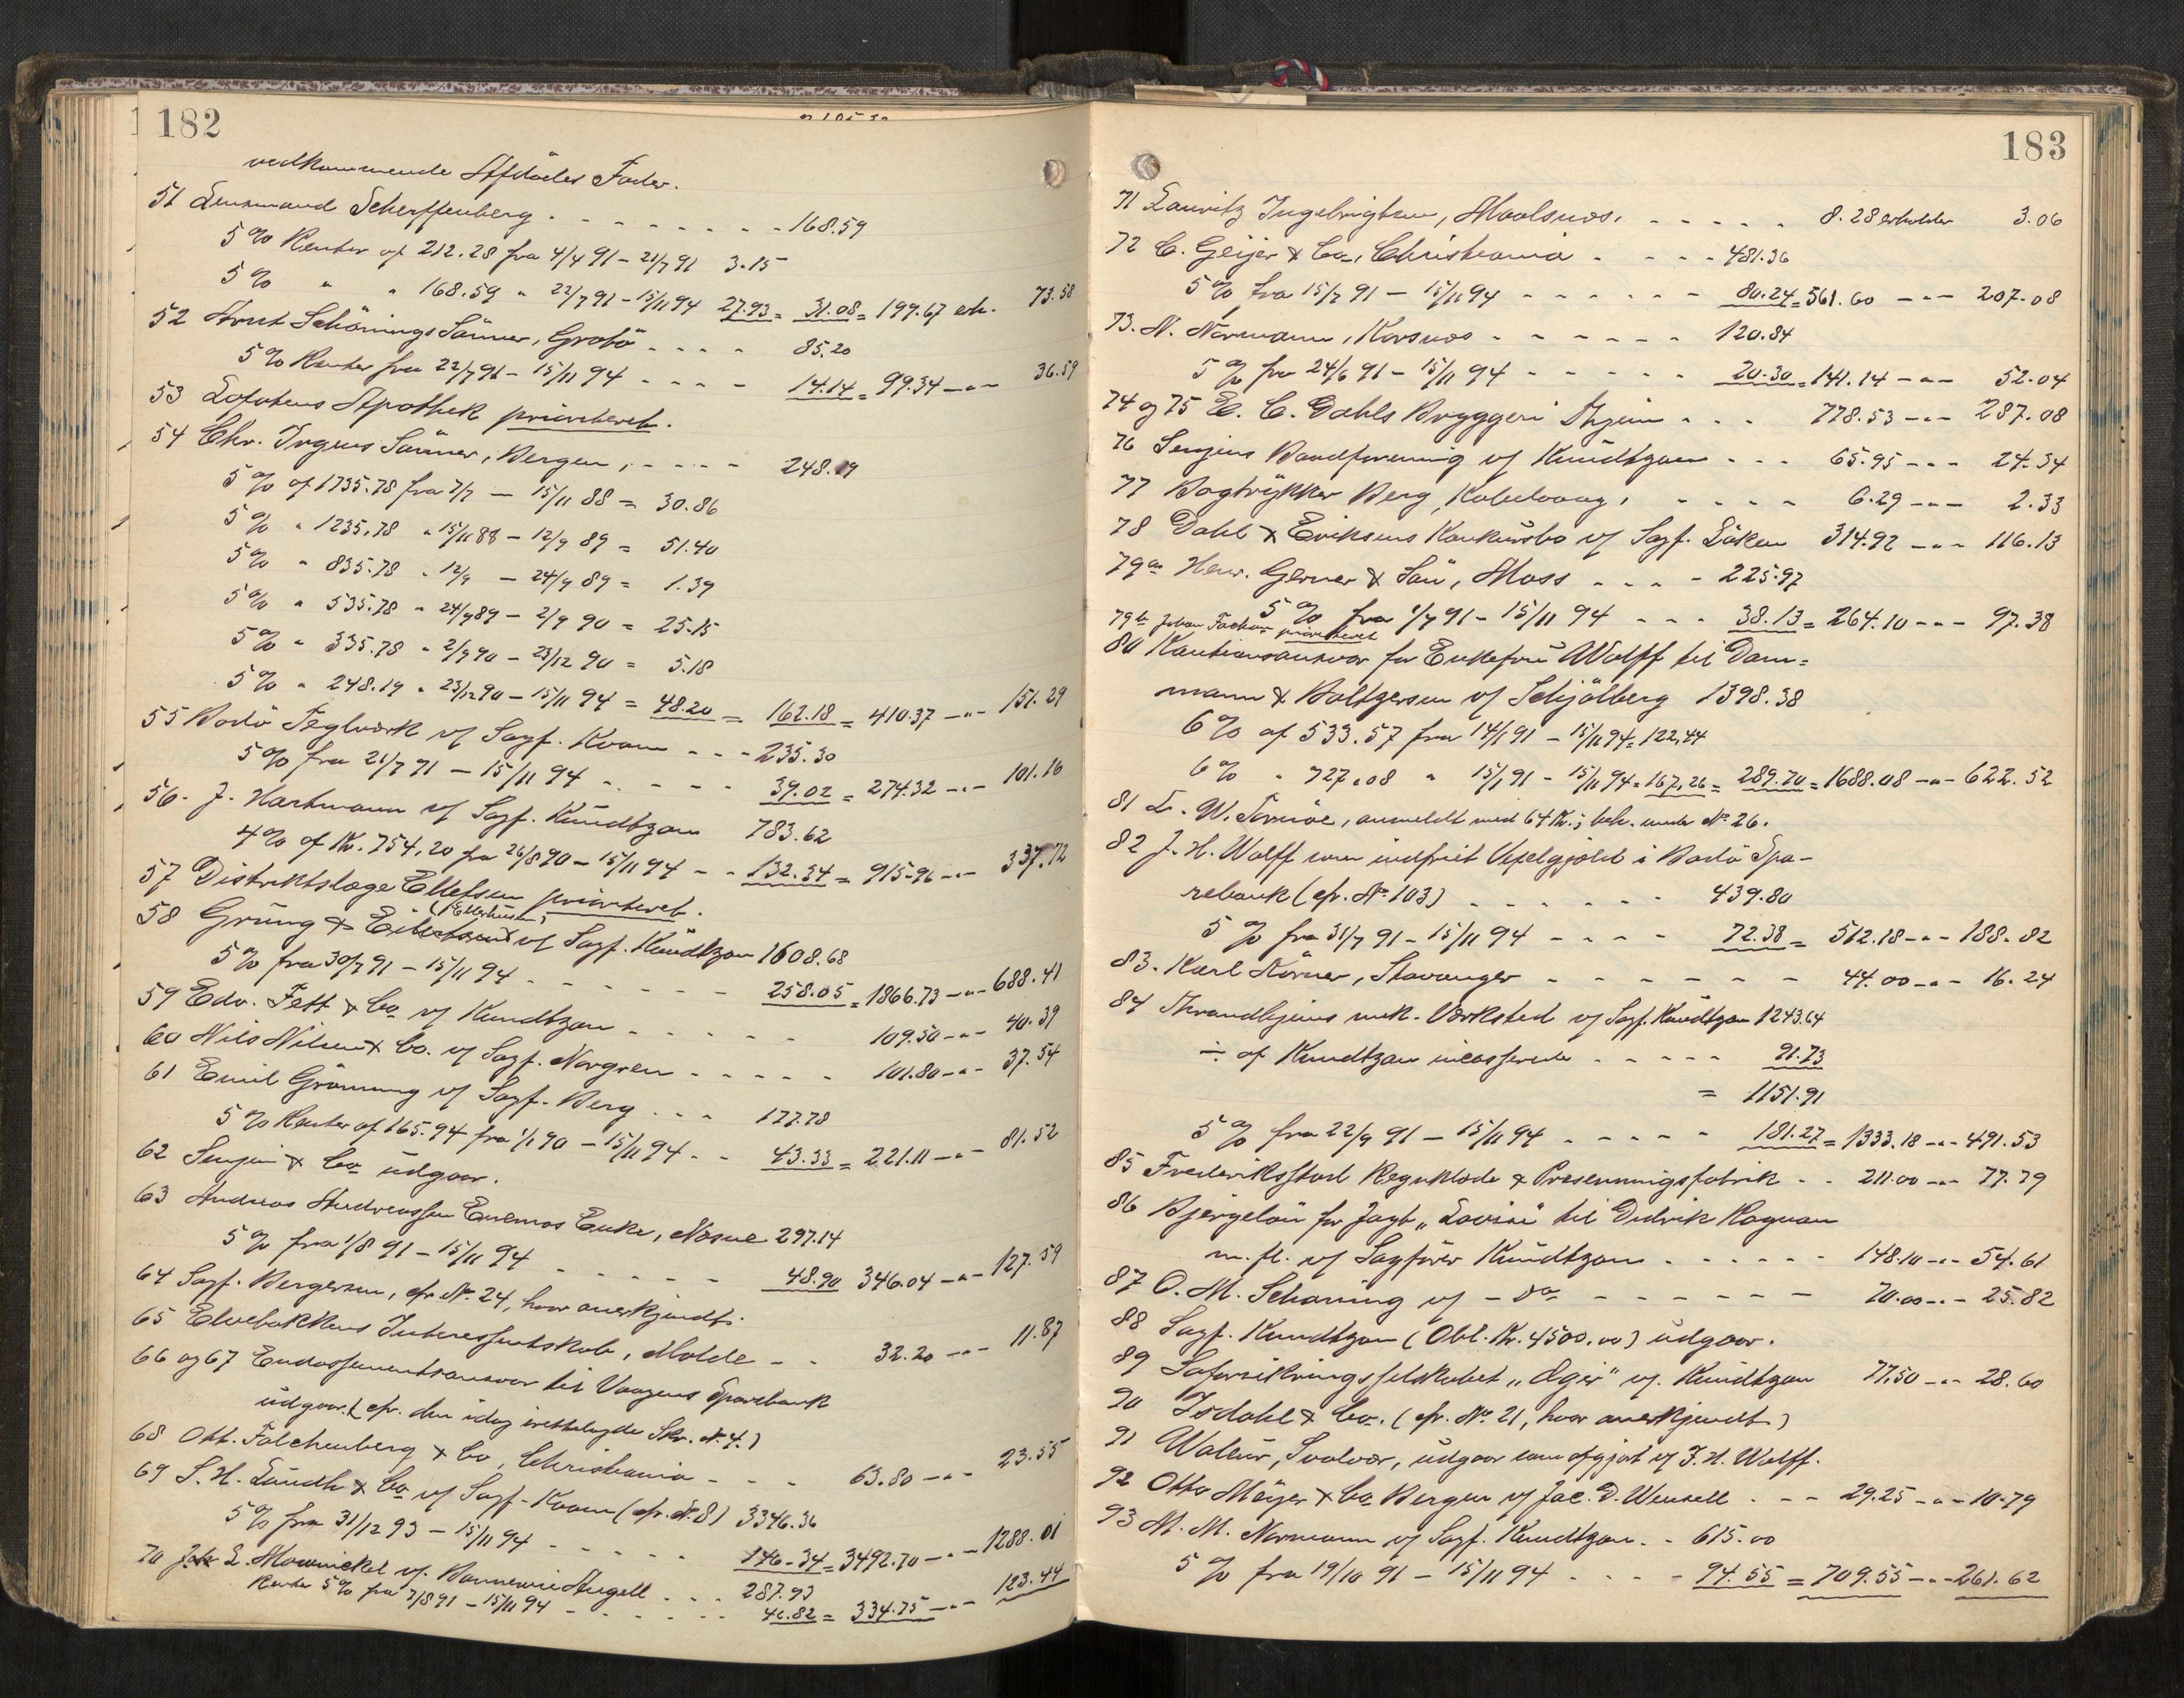 182
vedkommende Afdödes Fader.
51 Lensmand Scherffenberg - - - - - - - - 168.59
5 % Renter af 212.28 fra 4/4 91 - 21/7 91 3.15
5 % " " 168.59 " 22/7 91 - 15/11 94 27.93 = 31.08 = 199.67 erh. 73.58
52 Arnt Schönings Sönner, Grotö - - - - 85.20
5 % Renter fra 22/7 91 - 15/11 94 - - - - 14.14 = 99.34 -"- 36.59
53 Lofotens Apothek prioriteret.
54 Chr. Irgens Sönner, Bergen, - - - - 248.19
5 % af 1735.78 fra 7/7 - 15/11 88 = 30.86
5 % " 1235.78 " 15/11 88 - 12/9 89 = 51.40
5 % " 835.78 " 12/9 - 24/9 89 = 1.39
5 % " 535.78 " 24/9 89 - 2/9 90 = 25.15
5 % " 335.78 " 2/9 90 - 23/12 90 = 5.18
5 % " 248.19 " 23/12 90 - 15/11 94 = 48.20 = 162.18 = 410.37 -"- 151.29
55 Bodö Teglværk v/ Sagf. Kvam - - - 235.30
5 % fra 21/7 91 - 15/11 94 - - - - - 39.02 = 274.32 -"- 101.16
56. J. Hartmann v/ Sagf. Kündtzon 783.62
4 % af Kr. 754,20 fra 26/8 90 - 15/11 94 - - 132.34 = 915.96 -"- 337.72
57 Distriktslæge Ellefsen prioriteret.
58 Grüng & Eilertsen (Ellerhusen) v/ Sagf. Kündtzon 1608.68
5 % fra 30/7 91 - 15/11 94 - - - - - - 258.05 = 1866.73 -"- 688.41
59 Edv. Fett & Co v/ Kundtzon - - - - - 109.50 -"- 40.39
60 Nils Nilsen & Co. v/ Sagf. Norgren - - - - - 101.80 -"- 37.54
61 Emil Grönning v/ Sagf. Berg - - - 177.78
5 % Renter af 165.94 fra 1/1 90 - 15/11 94 - - 43.33 = 221.11 -"- 81.52
62 Senjen & Co udgaar.
63 Andreas Andreassen Evenæs Enke, Næsne 297.14
5 % fra 1/8 91 - 15/11 94 - - - - - - 48.90 346.04 -"- 127.59
64 Sagf. Bergersen, cfr. No. 24, hvor anerkjendt.
65 Elvebakkens Interessentskab, Molde - - 32.20 -"- 11.87
66 og 67 Endossementsansvar til Vaagens Sparebank
udgaar. (cfr. den idag irettelagte Skr. No. 4.)
68 Ott. Falchenberg & Co, Christiania - - - - 63.80 -"- 23.55
69 S. H. Lundh & Co v/ Sagf. Kvam (cfr. No. 8) 3346.36
5 % fra 31/12 93 - 15/11 94 - - - - - 146.34 = 3492.70 -"- 1288.01
70 Joh. L. Mowinckel v/ - - - 287.93
Renter 5 % fra 7/8 91 - 15/11 94 - - - - - - 46.82 = 334.75 -"- 123.44
183
71 Lauritz Ingebrigtsen, Maalsnæs, - - - - - 8.28 erholder 3.06
72 C. Geijer & Co., Christiania - - - - 481.36
5 % fra 15/7 91 - 15/11 94 - - - - - - 80.24 = 561.60 -"- 207.08
73. N. Normann, Korsnæs - - - - - - 120.84
5 % fra 24/6 91 - 15/11 94 - - - - - 20.30 = 141.14 -"- 52.04
74 og 75 E. C. Dahls Bryggeri Thjem - - - 778.53 -"- 287.08
76 Senjens Handforening v/ Kündtzon - - - 65.95 -"- 24.34
77 Bogtrykker Berg, Kabelvaag, - - - - - 6.29 -"- 2.33
78 Dahl & Eriksens Konkursbo v/ Sagf. Löken 314.92 -"- 116.13
79a Henr. Gerner & Sön, Moss - - - - 225.97
5 % fra 1/7 91 - 15/11 94 - - - 38.13 = 264.10 -"- 97.38
79b Johan prioriteret
80 Kautionsansvar for Enkefru Wolff til Dam=
mann & Baltzersen v/ Schjölberg 1398.38
6 % af 533.57 fra 14/1 91 - 15/11 94 = 122,44
6 % " 727.08 " 15/1 91 - 15/11 94 = 167,26 = 289.70 = 1688.08 -"- 622.52
81 L. W. , anmeldt med 64 Kr.; beh. under No. 26.
82 J. H. Wolff som indfriet Vexelgjæld i Bodö Spa-
rebank (cfr. No. 103) - - - - - - 439.80
5 % fra 31/7 91 - 15/11 94 - - - - 72.38 = 512.18 -"- 188.82
83. Karl Körner, Stavanger - - - - - - - 44.00 -"- 16.24
84 Throndhjems mek. Værksted v/ Sagf. Kündtzon 1243.64
÷ af Kundtzon incasserede - - - - - 91.73
= 1151.91
5 % fra 22/9 91 - 15/11 94 - - - - - 181.27 = 1333.18 -"- 491.53
85 Frederikstad Regnklæde & Presenningsfabrik - - 211.00 -"- 77.79
86 Bjergelön for Jagt „Lovise" til Didrik Hagmann
m. fl. v/ Sagförer Kündtzon - - - - - 148.10 -"- 54.61
87 O. M. Schanning v/ - do - - - - - - - 70.00 -"- 25.82
88 Sagf. Kundtzon (Obl. Kr. 4500.00) udgaar.
89 Söforsikringsselskabet „Ægir" v/. Kündtzon 77.50 -"- 28.60
90 Isdahl & Co. (cfr. No. 21, hvor anerkjendt)
91 Walsöe, Svolvær, udgaar som afgjort v/ J. H. Wolff.
92 Otto Meyer & Co Bergen v/ Jac. D. Wensell - - - 29.25 -"- 10.79
93 M. M. Normann v/ Sagf. Kundtzon - - 615.00
5 % fra 19/10 91 - 15/11 94 - - - - 94.55 = 709.55 -"- 261.62